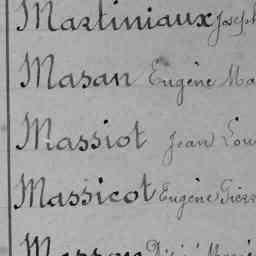 Martiniaux Joseph
Masan Eugène Ma
Massiot Jean Lou
Massicot Eugène Pierr